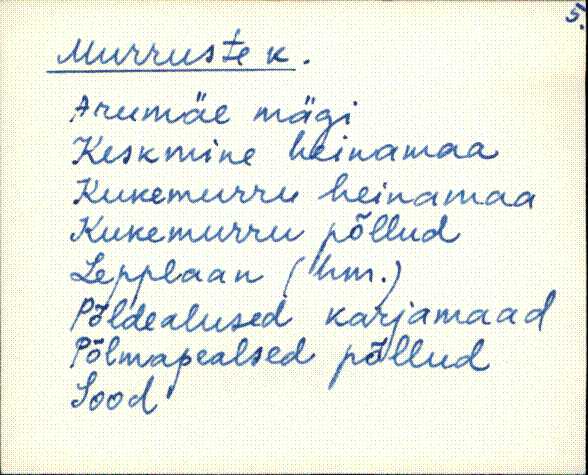 5.
Murruste k.
Arumäe mägi
Keskmine heinamaa
Kukemurru heinamaa
Kukemurru põllud
Lepplaan (hm.)
Põldealused karjamaad
Põlmapealsed põllud
Sood